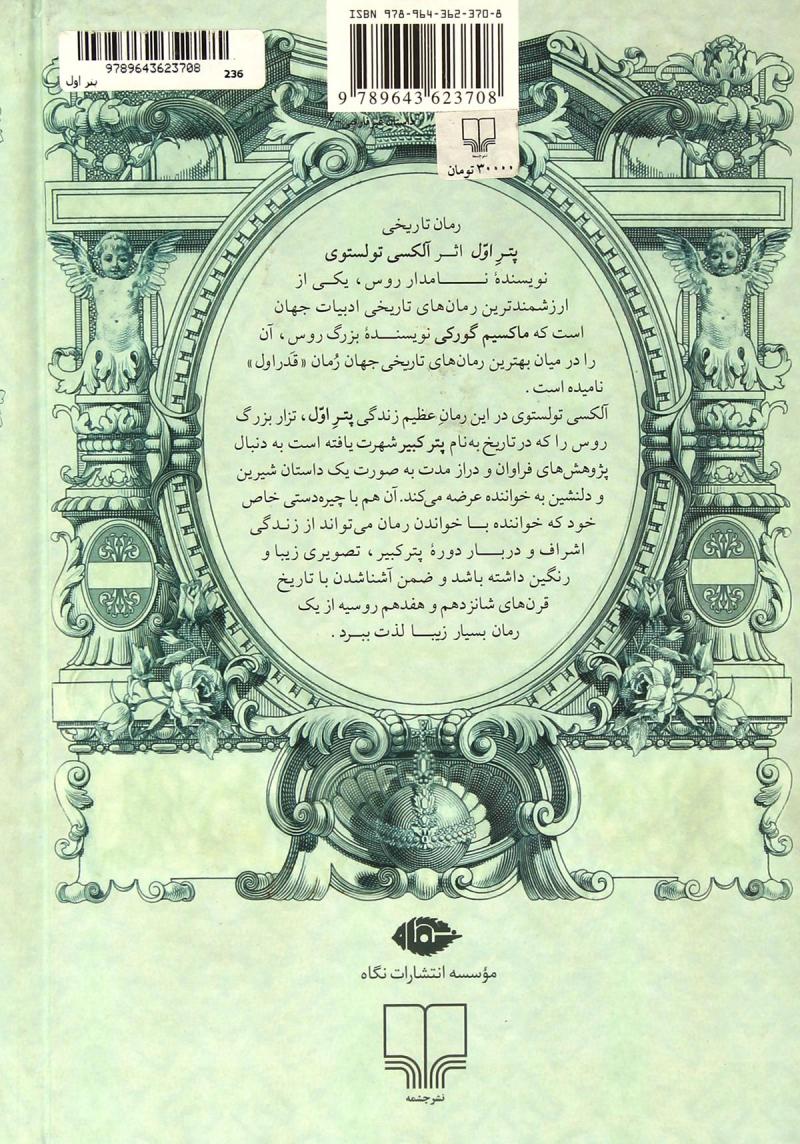 ISBN 978-964-362-370-8
9789643623708
236
پتر اول
9 789643 623708
نشرچشمه
۳۰۰۰۰ تومان
رمان تاریخی
پترِ اوّل اثـر آلکسی تولستوی
نویسندهٔ نـــامدار روس، یکی از
ارزشمندترین رمان‌های تاریخی ادبیات جهان
است که ماکسیم گورکی نویسنـدهٔ بزرگ روس، آن
را در میان بهترین رمان‌های تاریخی جهان رُمان «قَدَر اول»
نامیده است.
آلکسی تولستوی در این رمانِ عظیم زندگی پترِ اوّل، تزار بزرگ
روس را که در تاریخ به‌نام پتر کبیر شهرت یافته است به دنبال
پژوهش‌های فراوان و دراز مدت به صورت یک داستان شیرین
و دلنشین به خواننده عرضه می‌کند. آن هم با چیره‌دستی خاص
خود که خواننده بـا خواندن رمان می‌تواند از زنـدگی
اشراف و دربـار دورهٔ پترکبیر، تصویری زیبا و
رنگین داشته باشد و ضمن آشناشدن با تاریخ
قرن‌های شانزدهم و هفدهم روسیه از یک
رمان بسیار زیبـا لذت ببرد.
مؤسسه انتشارات نگاه
نشرچشمه